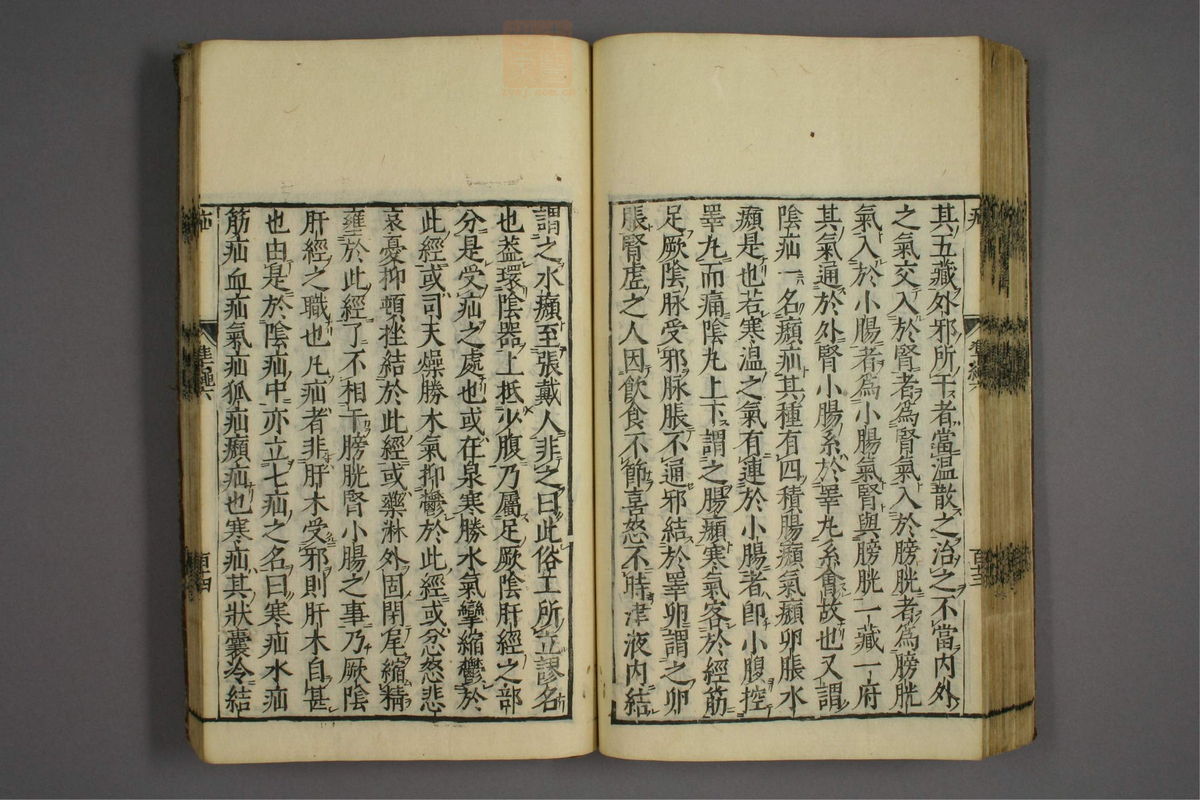 其五藏外邪所干者當温散之治之不當内外
之氣交入於腎者爲腎氣入於膀胱者爲膀胱
氣入於小腸者爲小腸氣腎與膀胱一藏一府
其氣通於外腎小腸系於睪丸系會故也又謂
陰疝一名㿗疝其種有四積腸㿗氣㿗卵脹水
㿗是也若寒温之氣有連於小腸者卽小腹控
睪丸而痛陰丸上下謂之腸㿗寒氣客於經筋
足厥陰脉受邪脉脹不通邪結於睪卵謂之卵
脹腎虚之人因飲食不節喜怒不時津液内結
謂之水㿗至張戴人非之曰此俗工所立謬名
也葢環陰器上抵少腹乃屬足厥陰肝經之部
分是受疝之處也或在泉寒勝水氣攣縮鬱於
此經或司天燥勝木氣抑鬱於此經或忿怒悲
哀憂抑頓挫結於此經或藥淋外固閉尾縮精
壅於此經了不相干膀胱腎小腸之事乃厥陰
肝經之職也凢疝者非肝木受邪則肝木自甚
也由是於陰疝中亦立七疝之名曰寒疝水疝
筋疝血疝氣疝狐疝㿗疝也寒疝其狀囊冷結
疝
百十四